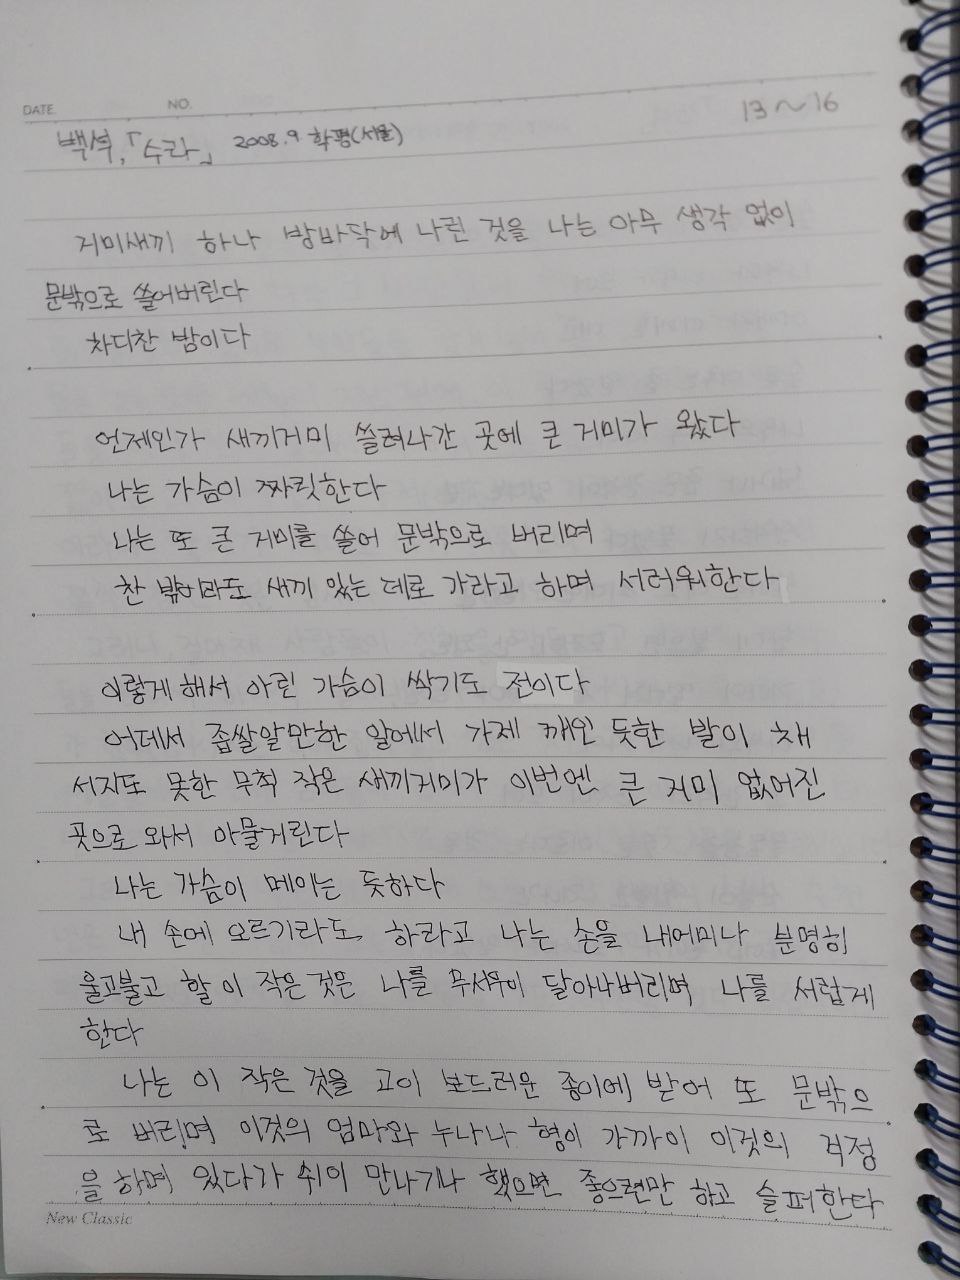 DATE NO.
13~16
백석, 「수라」 2008.9 학평(서울)
거미새끼 하나 방바닥에 나린 것을 나는 아무 생각 없이
문밖으로 쓸어버린다
차디찬 밤이다
언제인가 새끼거미 쓸려나간 곳에 큰 거미가 왔다
나는 가슴이 짜릿한다
나는 또 큰 거미를 쓸어 문밖으로 버리며
찬 밖이라도 새끼 있는 데로 가라고 하며 서러워한다
이렇게 해서 아린 가슴이 싹기도 전이다
어데서 좁쌀알만한 알에서 가제 깨인 듯한 발이 채
서지도 못한 무척 작은 새끼거미가 이번엔 큰 거미 없어진
곳으로 와서 아물거린다
나는 가슴이 메이는 듯하다
내 손에 오르기라도 하라고 나는 손을 내어미나 분명히
울고불고 할 이 작은 것은 나를 무서우이 달아나버리며 나를 서럽게
한다
나는 이 작은 것을 고이 보드러운 종이에 받어 또 문밖으
로 버리며 이것의 엄마와 누나나 형이 가까이 이것의 걱정
을 하며 있다가 쉬이 만나기나 했으면 좋으련만 하고 슬퍼한다
New Classic